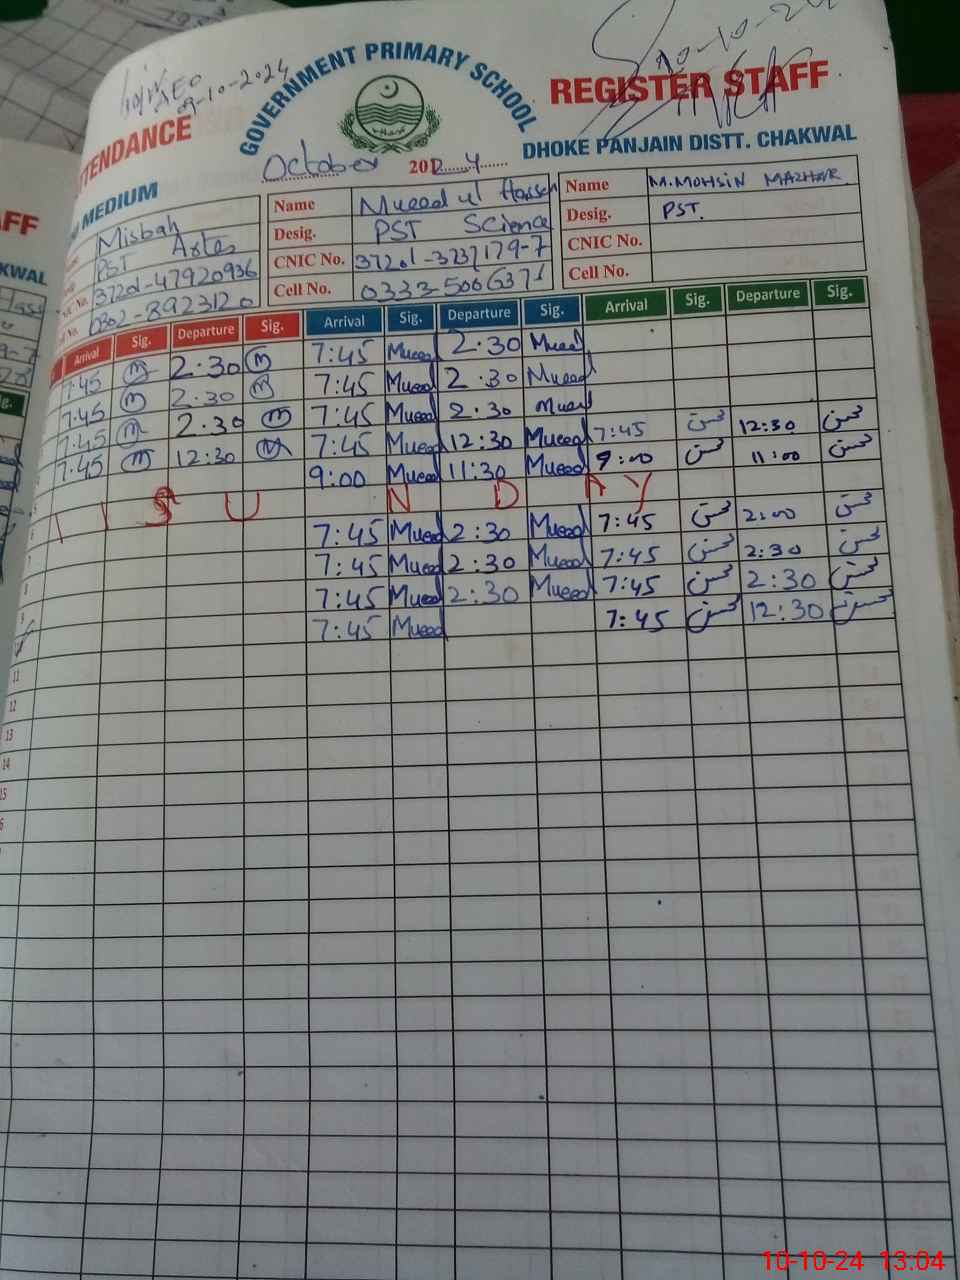 09-10-2024
10-10-24
GOVERNMENT PRIMARY SCHOOL
REGISTER STAFF
TTENDANCE
DHOKE PANJAIN DISTT. CHAKWAL
October 2024
MEDIUM
Misbah
PST Artes
37201-47920936
0302-8923120
Name Mueed ul Hassan
Desig. PST Science
CNIC No. 37201-3237179-7
Cell No. 0333-5066371
Name M.MOHSIN MAZHAR
Desig. PST.
CNIC No.
Cell No.
Arrival Sig. Departure Sig. Arrival Sig. Departure Sig. Arrival Sig. Departure Sig.
7:45 m 2:30 m 7:45 Mueed 2:30 Mueed
7:45 m 2:30 m 7:45 Mueed 2:30 Mueed
7:45 m 2:30 m 7:45 Mueed 2:30 Mueed
7:45 m 12:30 m 7:45 Mueed 12:30 Mueed 7:45 محسن 12:30 محسن
9:00 Mueed 11:30 Mueed 9:00 محسن 11:00 محسن
SUNDAY
7:45 Mueed 2:30 Mueed 7:45 محسن 2:00 محسن
7:45 Mueed 2:30 Mueed 7:45 محسن 2:30 محسن
7:45 Mueed 2:30 Mueed 7:45 محسن 2:30 محسن
7:45 Mueed 7:45 محسن 12:30 محسن
11
12
13
14
15
10-10-24 13:04